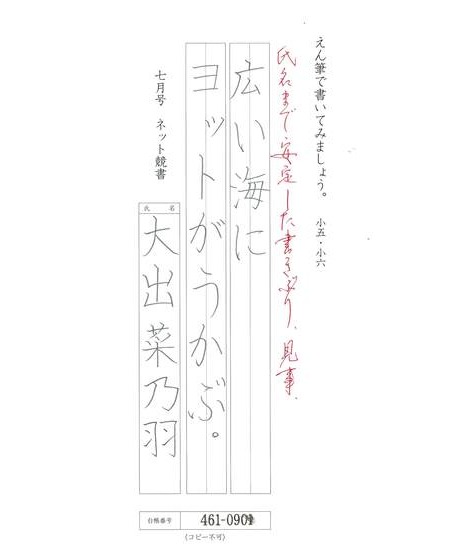 えん筆で書いてみましょう。 小五・小六
氏名まで安定した書きぶり、見事、
広い海に
ヨットがうかぶ。
七月号 ネット競書
氏 名
大出菜乃羽
台帳番号 461-0909
(コピー不可)